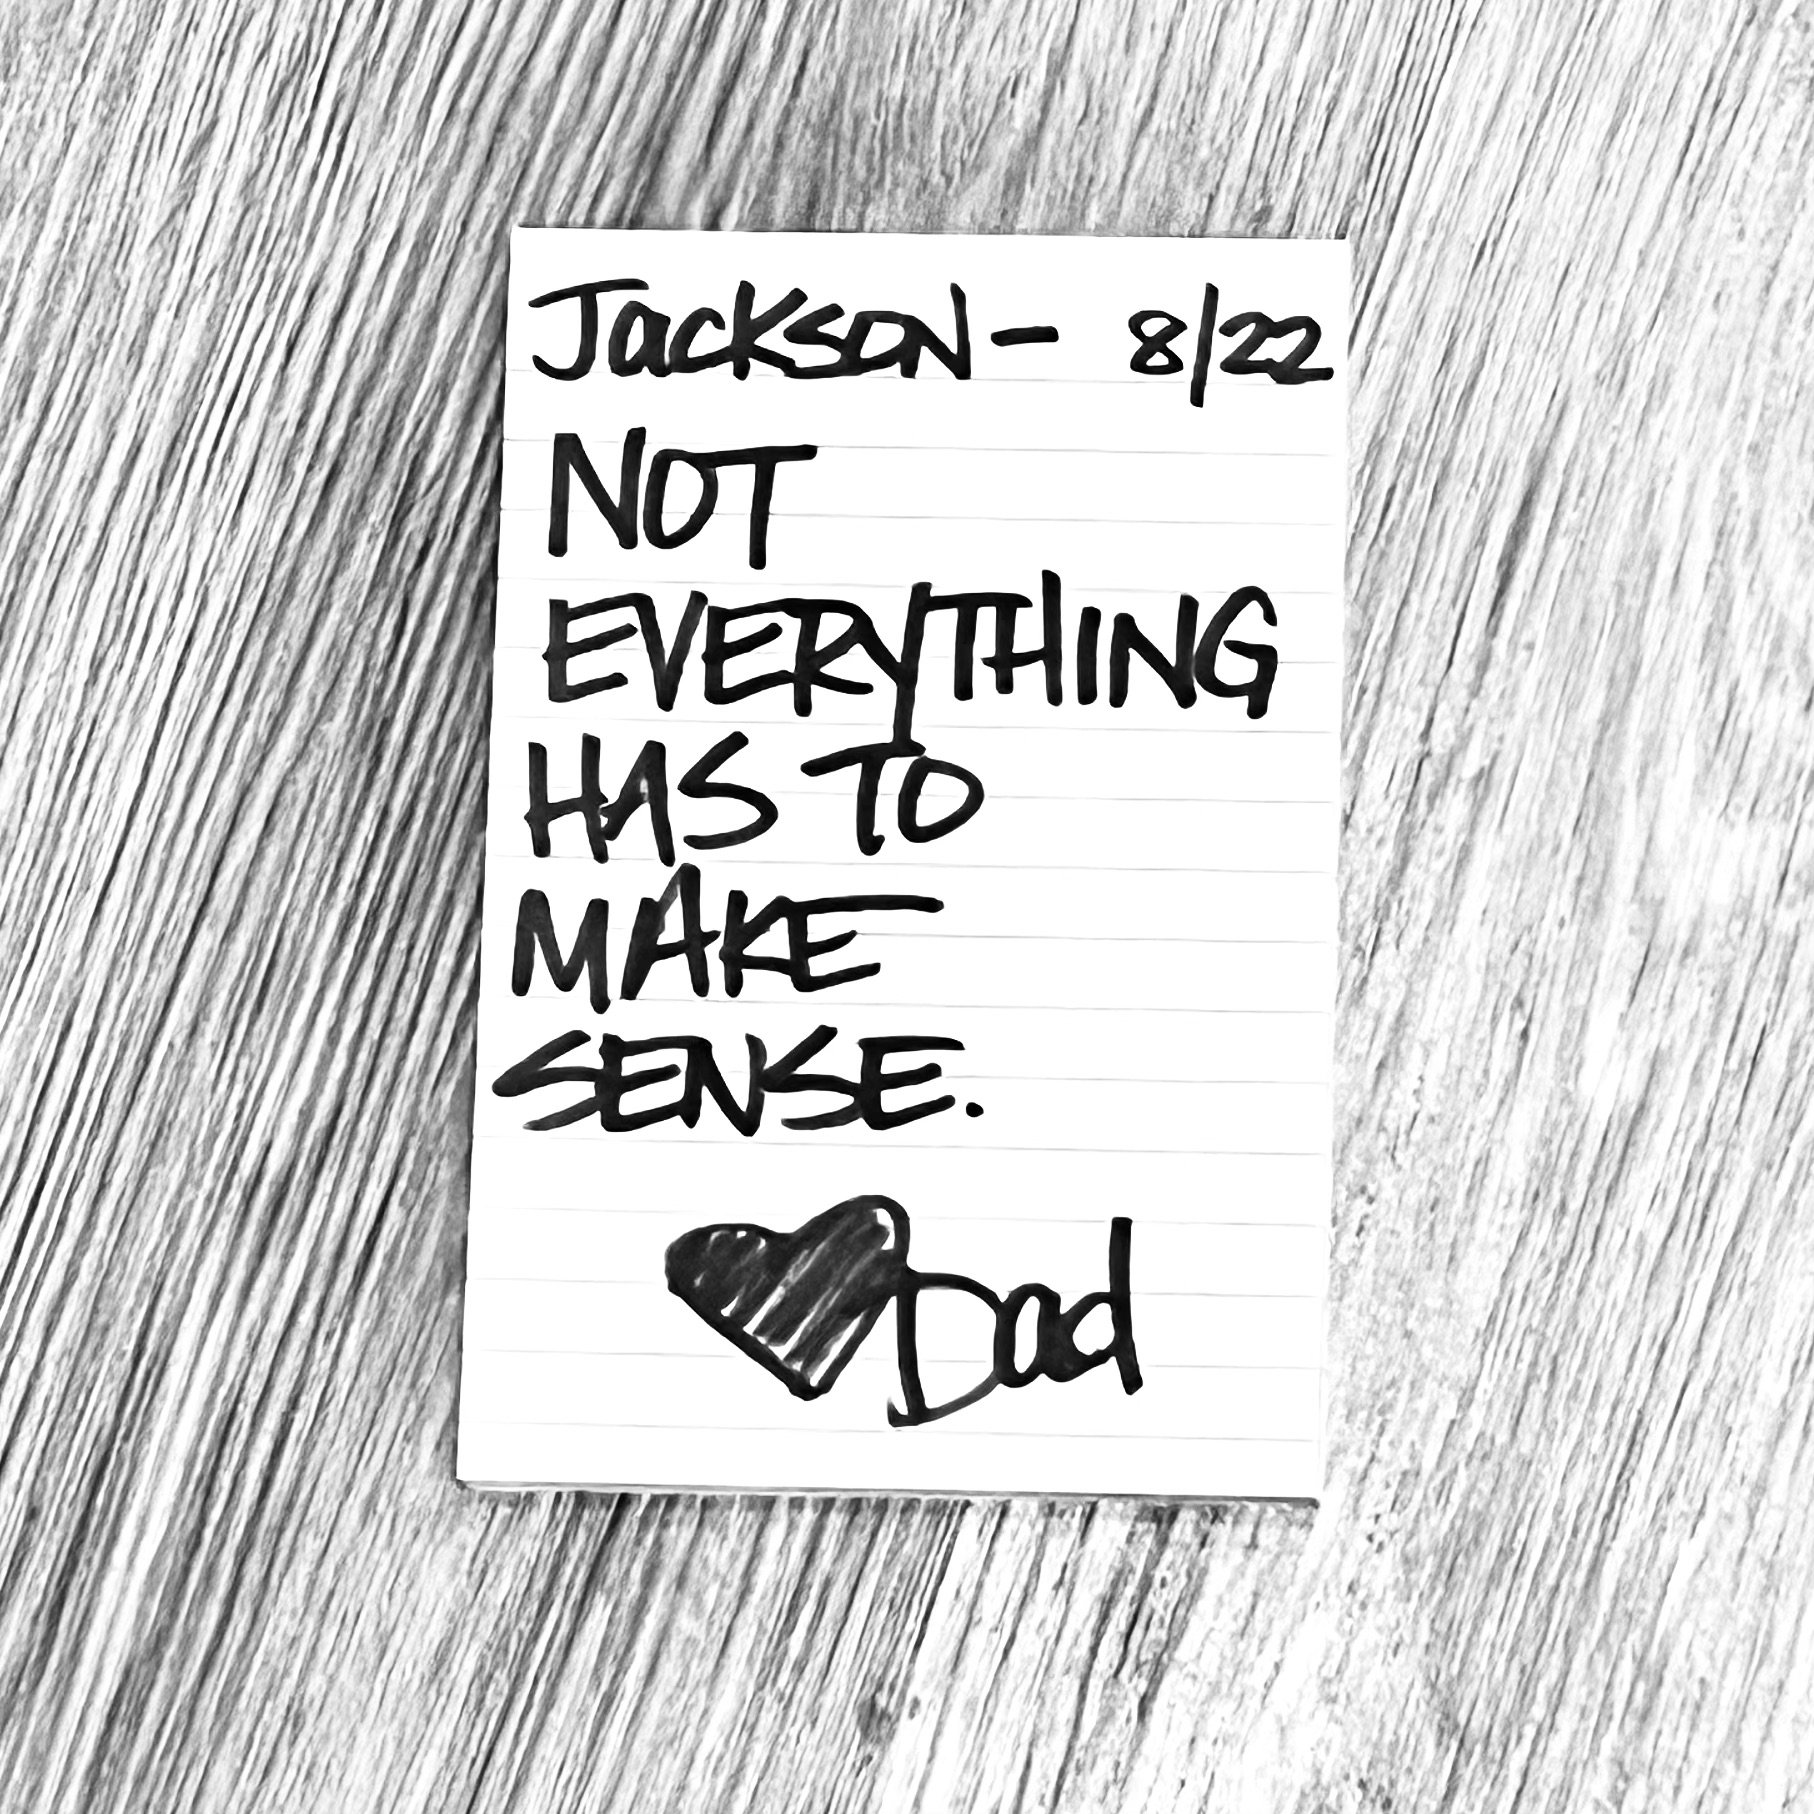 Jackson- 8/22
NOT
EVERYTHING
HAS TO
MAKE
SENSE.
Dad